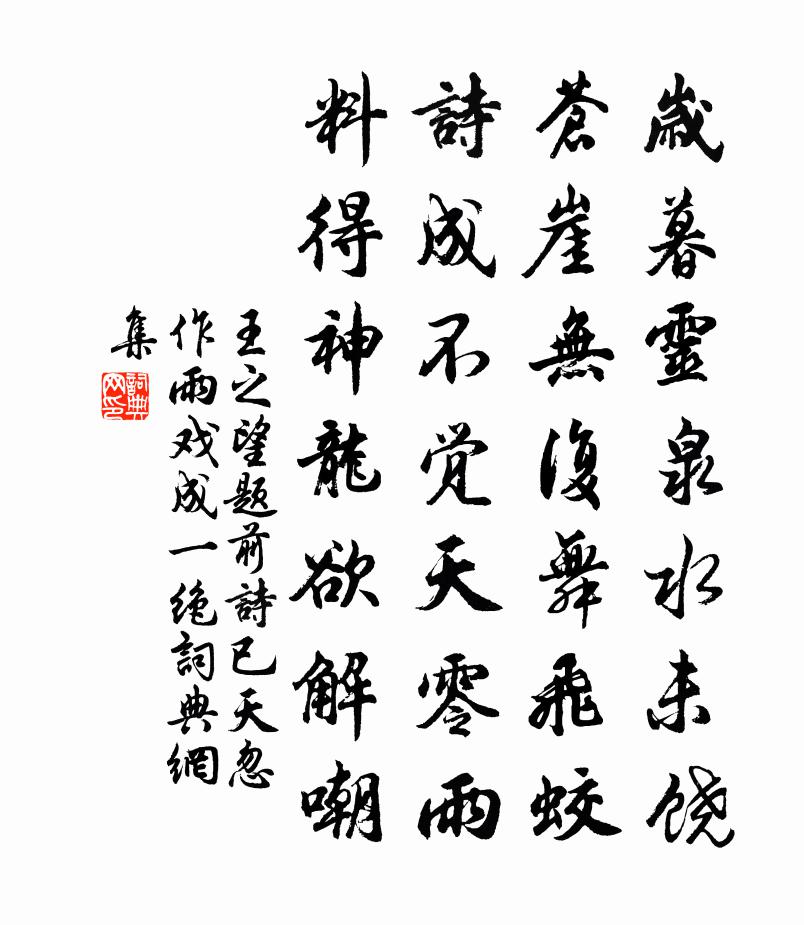 歲暮靈泉水未饶
蒼崖無復舞飛蛟
詩成不觉天零雨
料得神龍欲解嘲
王之望題前詩已天忽
作雨戏成一绝詞典網
集
詞典网印